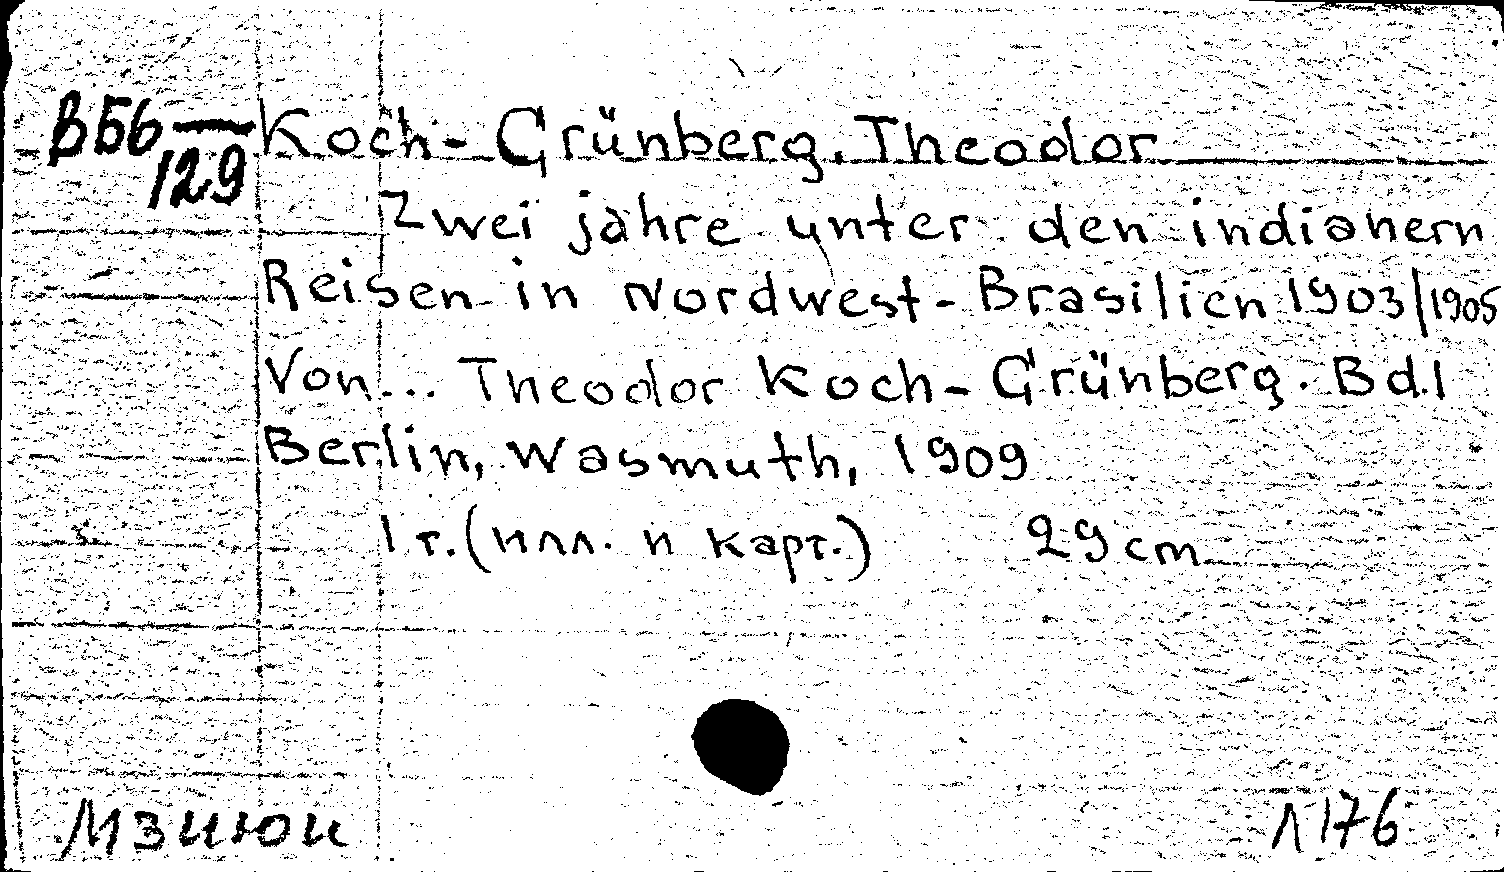 ВБ6/129 Koch-Grünberg, Theodor
Zwei jahre unter den indianern
Reisen in Nordwest-Brasilien 1903/1905
Von... Theodor Koch-Grünberg. Bd.1
Berlin, Wasmuth, 1909
1 т. (илл. и карт.) 29 cm
Л176